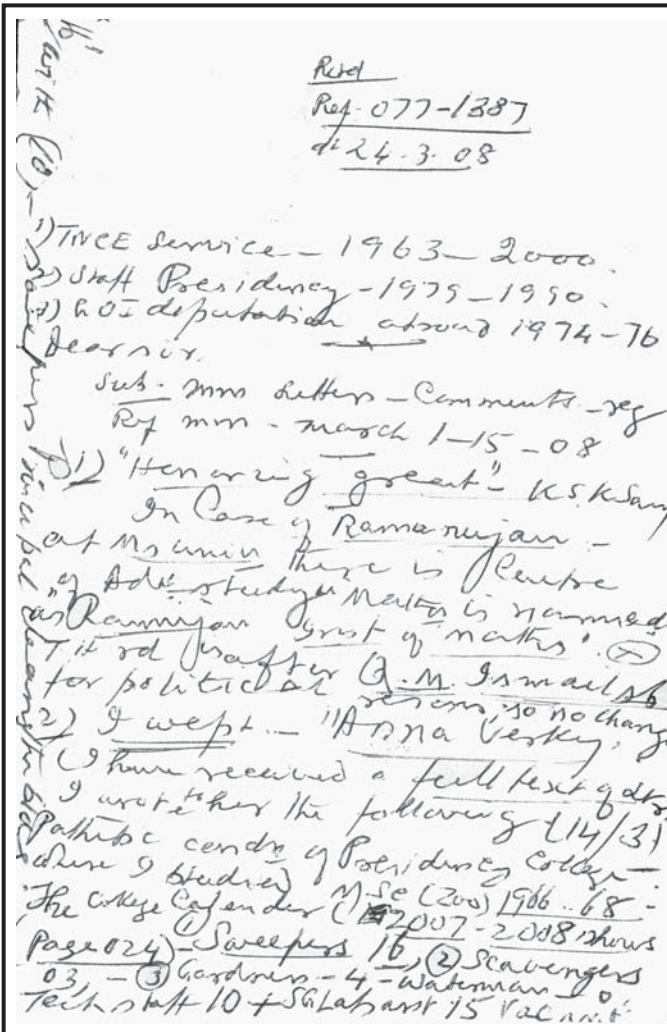 Recd
Ref. 077-1387
dt 24.3.08
1) TNCE Service - 1963-2000.
2) Staff Presidency - 1979-1990.
3) GOI deputation abroad 1974-76
Dear sir.
Sub. mm Letters - Comments - reg
Ref mm - march 1-15-08
1) "Honouring great" - K.S.K Samy
In Case of Ramanujan -
at Ms univ there is Centre
of Adv. study Maths is nammed
as "Ramujan Inst of maths".
T H rd is after Q.M. Ismail
for political reasons, so no change
2) I wept - "Anna Verkey,
(I have received a full text of
I wrote to her the following (14/3)
Pathetic condn of Presidency College -
where I studied M.Sc (Zoo) 1966-68 -
The College Calender (2007-2008 shows
Page 024) - ① Sweepers 16, ② Scavengers
03, - ③ Gardners - 4 - Waterman - 0
Tech staff 10 + 15 Vacant